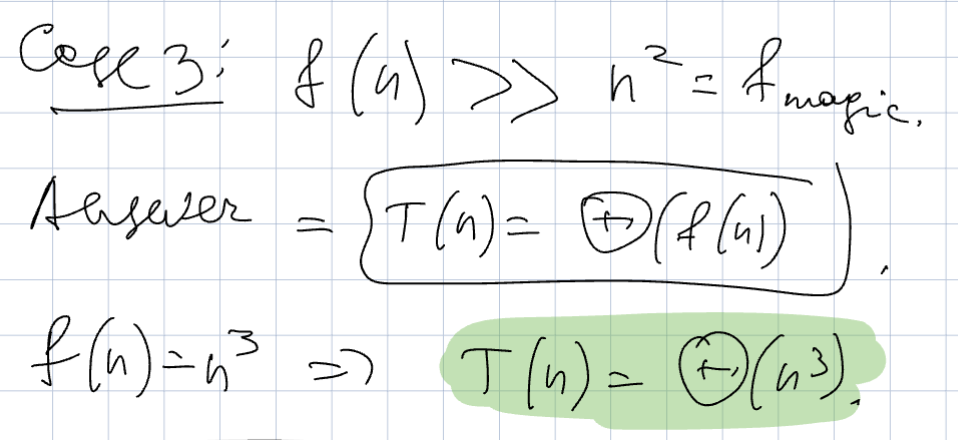 Case 3: f(n) >> n² = f magic.
Answer = T(n) = Θ(f(n)).
f(n) = n³ => T(n) = Θ(n³).